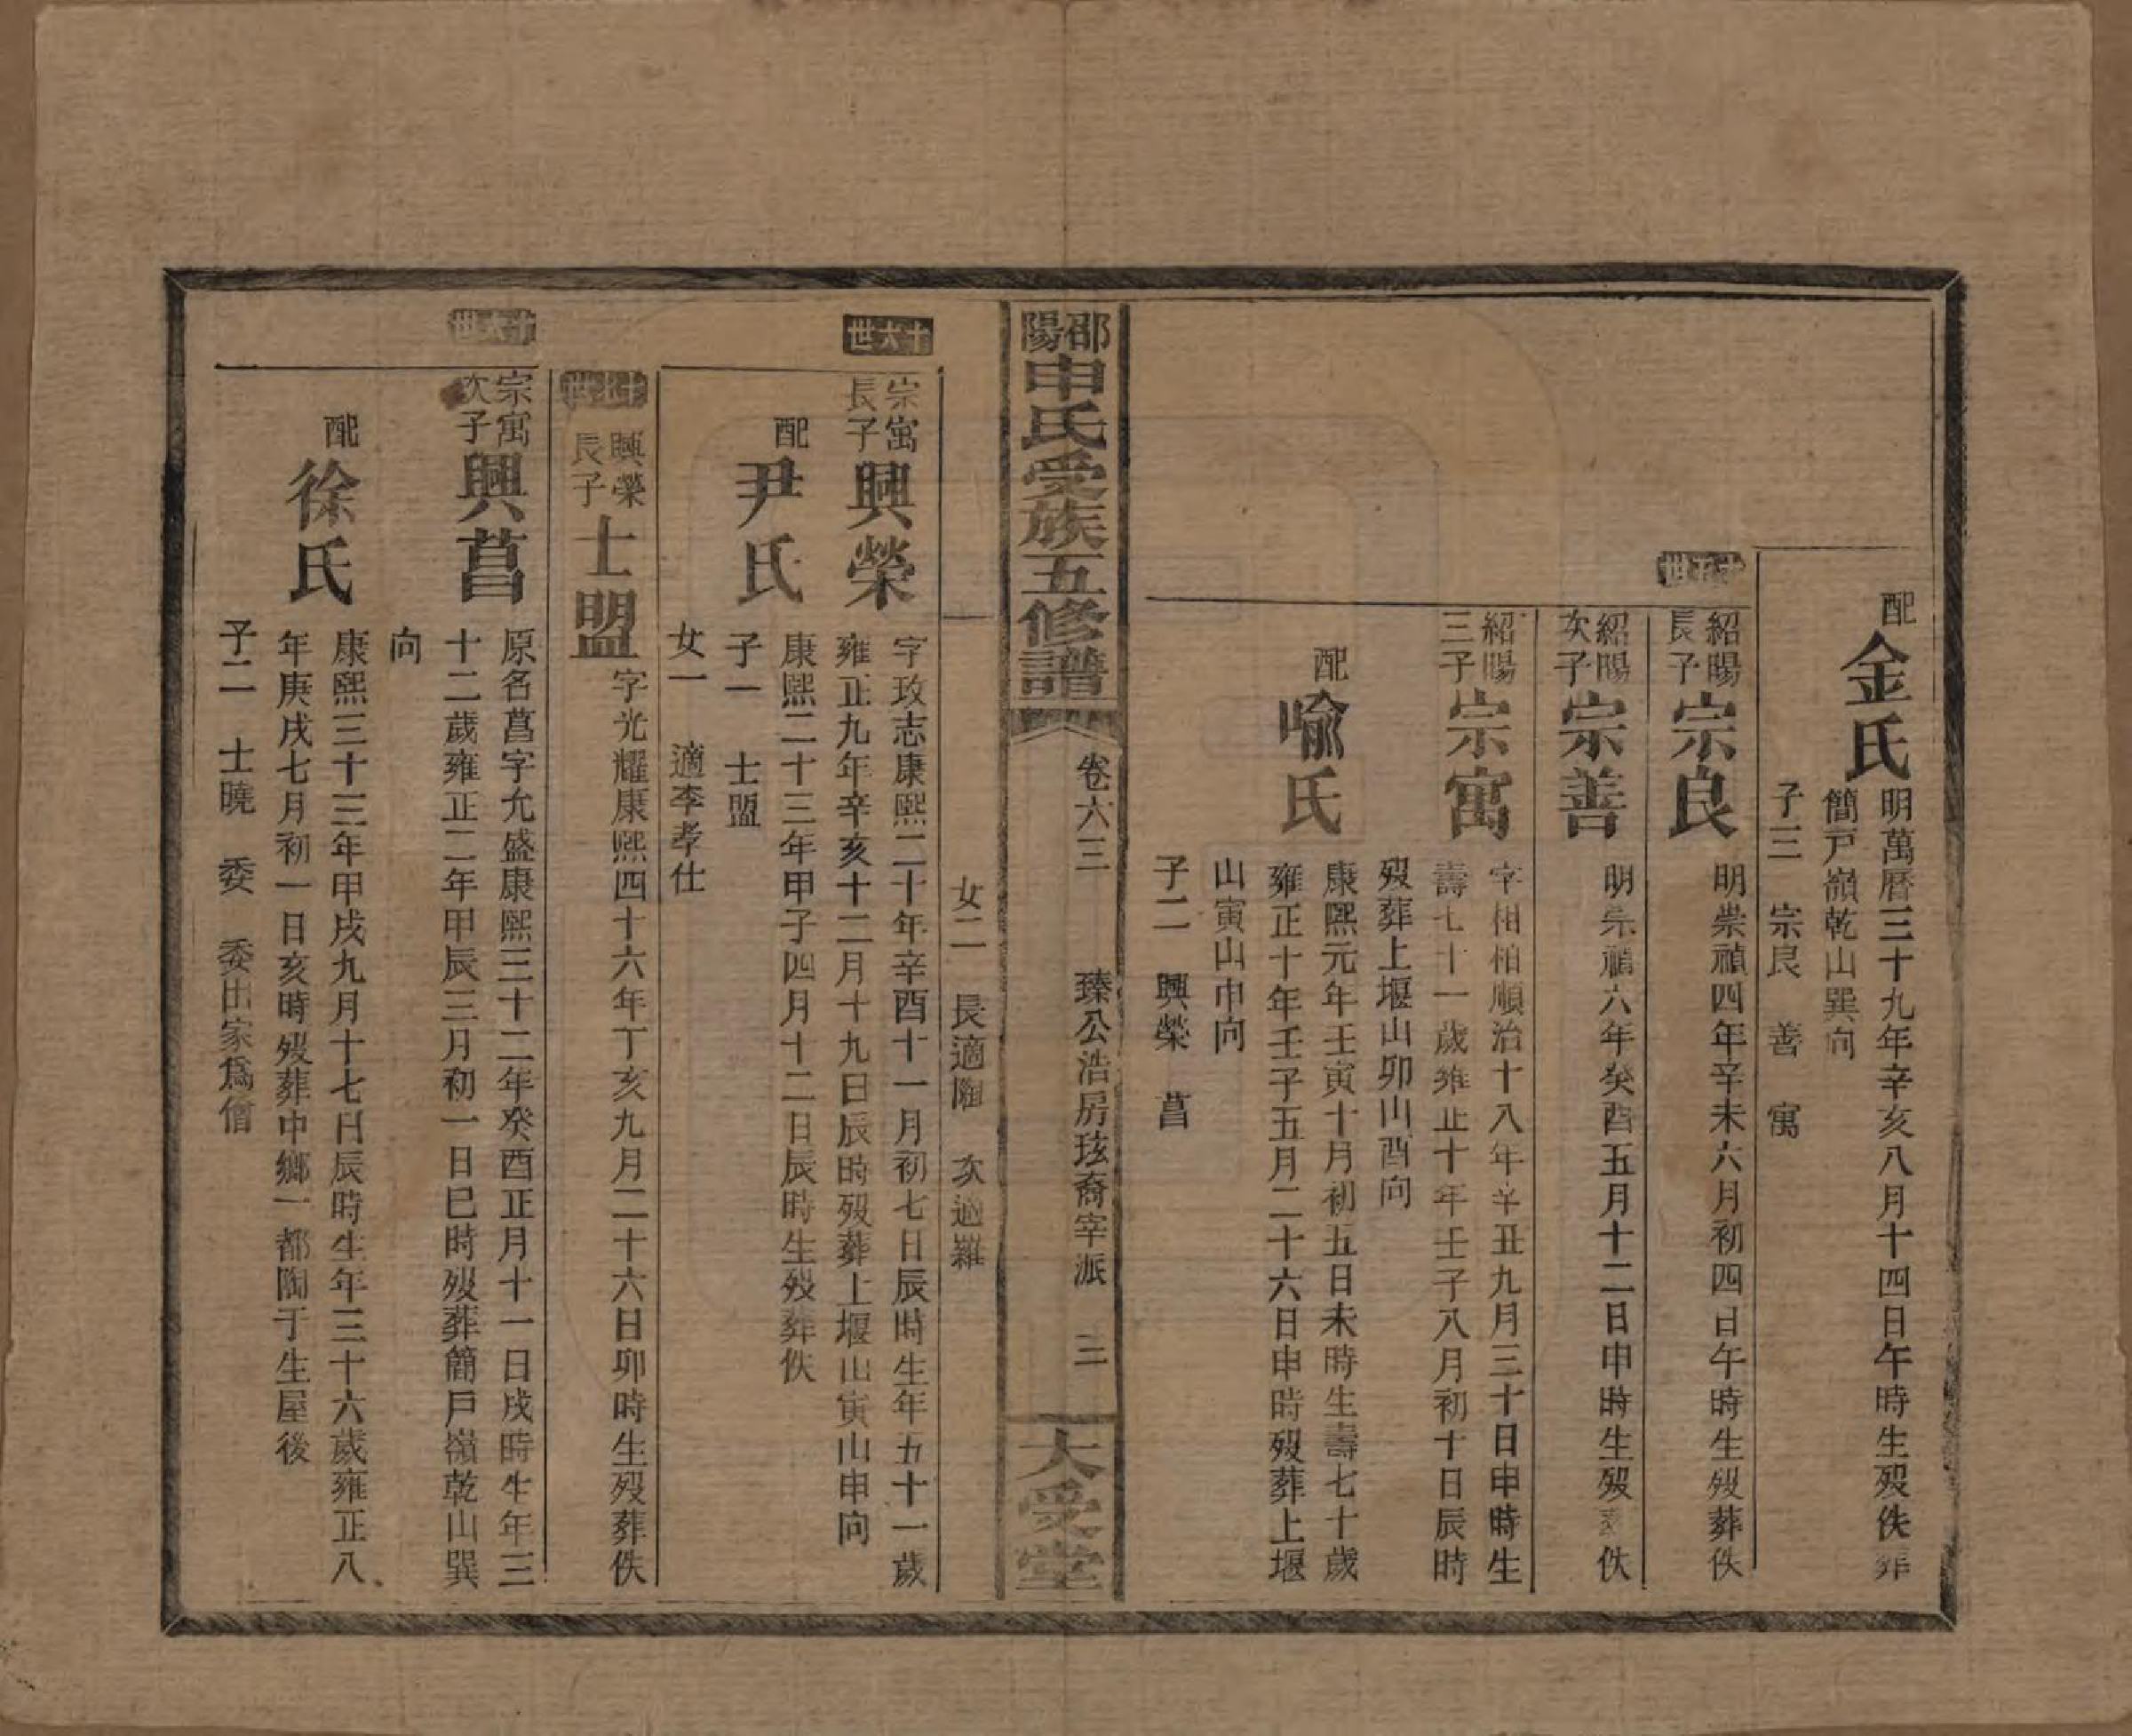 配
金氏
明萬曆三十九年辛亥八月十四日午時生歿佚葬
簡戸嶺乾山巽向
子三 宗良 善 寓
十五世
紹陽長子
宗良
明崇禎四年辛未六月初四日午時生歿葬佚
紹陽次子
宗善
明崇禎六年癸酉五月十二日申時生歿葬佚
紹陽三子
宗寓
字相柏順治十八年辛丑九月三十日申時生
壽七十一歲雍正十年壬子八月初十日辰時
歿葬上堰山卯山酉向
配
喻氏
康熙元年壬寅十月初五日未時生壽七十歲
雍正十年壬子五月二十六日申時歿葬上堰
山寅山申向
子二 興榮 菖
邵陽申氏受族五修譜
卷六三
臻公浩房玹裔宰派 三
大受堂
女二 長適陶 次適羅
十六世
宗寓長子
興榮
字玫志康熙二十年辛酉十一月初七日辰時生年五十一歲
雍正九年辛亥十二月十九日辰時歿葬上堰山寅山申向
配
尹氏
康熙二十三年甲子四月十二日辰時生歿葬佚
子一 士盟
女一 適李孝仕
十七世
興榮長子
士盟
字光耀康熙四十六年丁亥九月二十六日卯時生歿葬佚
十六世
宗寓次子
興菖
原名菖字允盛康熙三十二年癸酉正月十一日戌時生年三
十二歲雍正二年甲辰三月初一日巳時歿葬簡戸嶺乾山巽
向
配
徐氏
康熙三十三年甲戌九月十七日辰時生年三十六歲雍正八
年庚戌七月初一日亥時歿葬中鄉一都陶于生屋後
子二 士曉 委 委出家爲僧